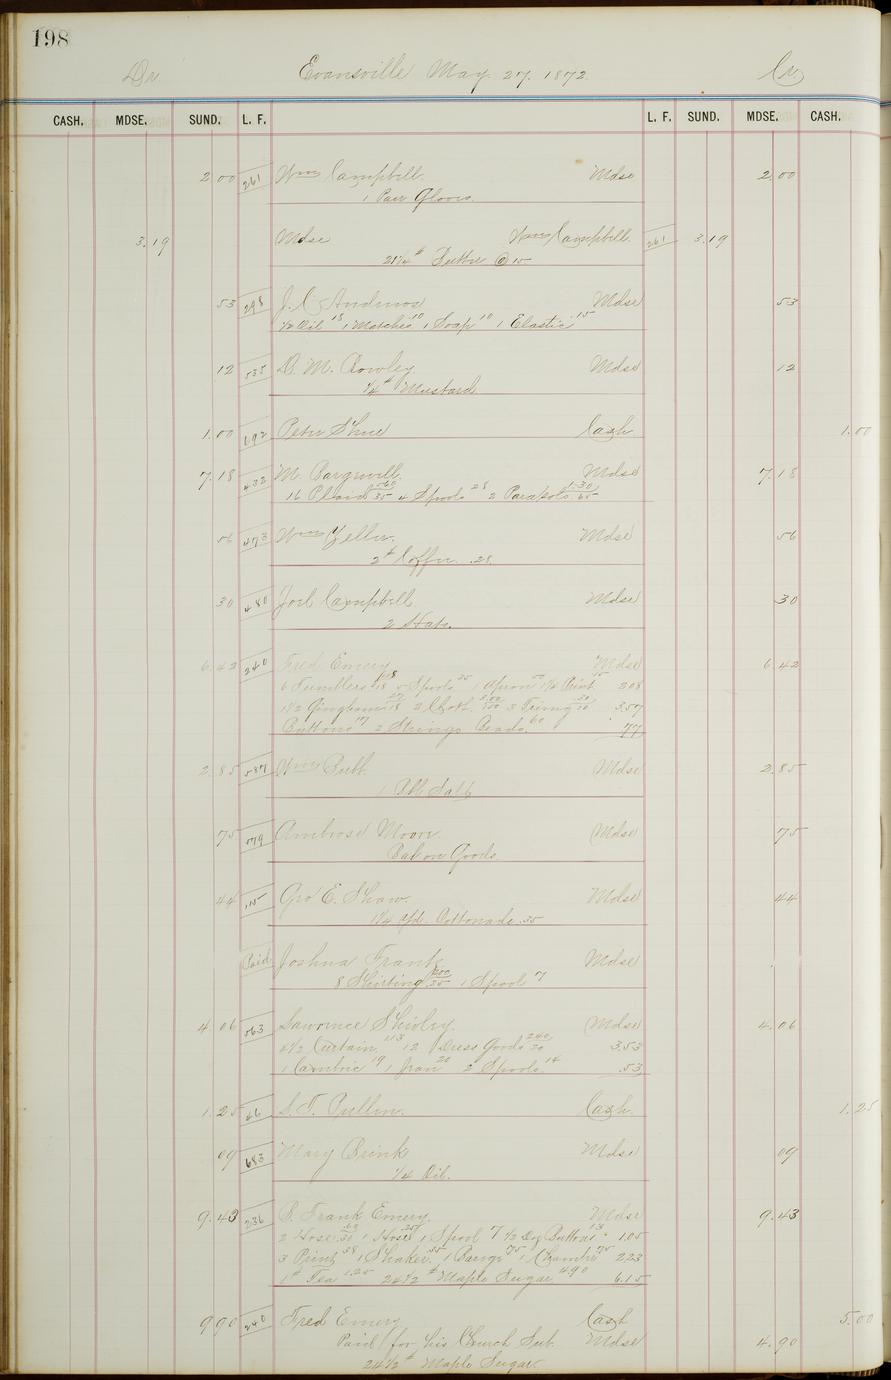 198
Dr Evansville May 27. 1872 Cr
CASH. MDSE. SUND. L. F. L. F. SUND. MDSE. CASH.
2 00 261 Wm Campbell. Mdse 2.00
1 Pair Gloves.
3.19 Mdse Wm Campbell. 261 3.19
21 1/4 # Butter @ 15
53 298 J. C. Andrews Mdse 53
1/2 Oil 18 1 Matches 10 1 Soap 10 1 Elastic 15
12 535 D. M. Rowley Mdse 12
1/4 # Mustard
1.00 692 Peter Shue Cash 1.00
7.18 432 M. Mdse 7.18
16 Plaid 560/35 4 Spools 28 2 Parasols 1.30/65
56 473 Wm Zeller. Mdse 56
2 # Coffee .28
30 480 Joel Campbell Mdse 30
2 Hats.
6.42 240 Fred Emery Mdse 6.42
6 Tumblers 5 Spools 35 1 Apron 1 1/2 Print 15 208
1 1/2 Gingham 27/18 2 Cloth 3.00 3 Trimg 30/10 3.57
Buttons 17 2 Strings Beads. 60 77
2.85 587 Wm Mdse 2.85
1 Bbl Salt
75 579 Ambrose Moore Mdse 75
Bal on Goods
44 Geo E. Shaw. Mdse 44
1 1/4 yd. Cottonade .35
Paid Joshua Frank Mdse
8 Shirting 1 Spool 7
4.06 563 Lawrence Shivley. Mdse 4.06
Curtain 113 12 Dress Goods 240/20 3.53
1 Cambric 19 1 20 2 Spools. 14 .53
1.25 66 S. T. Pullen. Cash 1.25
09 683 Mary Brink Mdse 09
1/4 Oil.
9.43 236 B. Frank Emery. Mdse 9.43
2 Hose 1 Hose 1 Spool 7 1/2 Doz Buttons 13 1.05
3 Print 38 1 Shaker 35 1 Barege 75 1 Chambre 75 2 23
1 # Tea 1.25 24 1/2 # Maple Sugar 4.90 6.15
9 90 240 Fred Emery Cash 5.00
Paid for his Church Sub. Mdse 4.90
24 1/2 # Maple Sugar